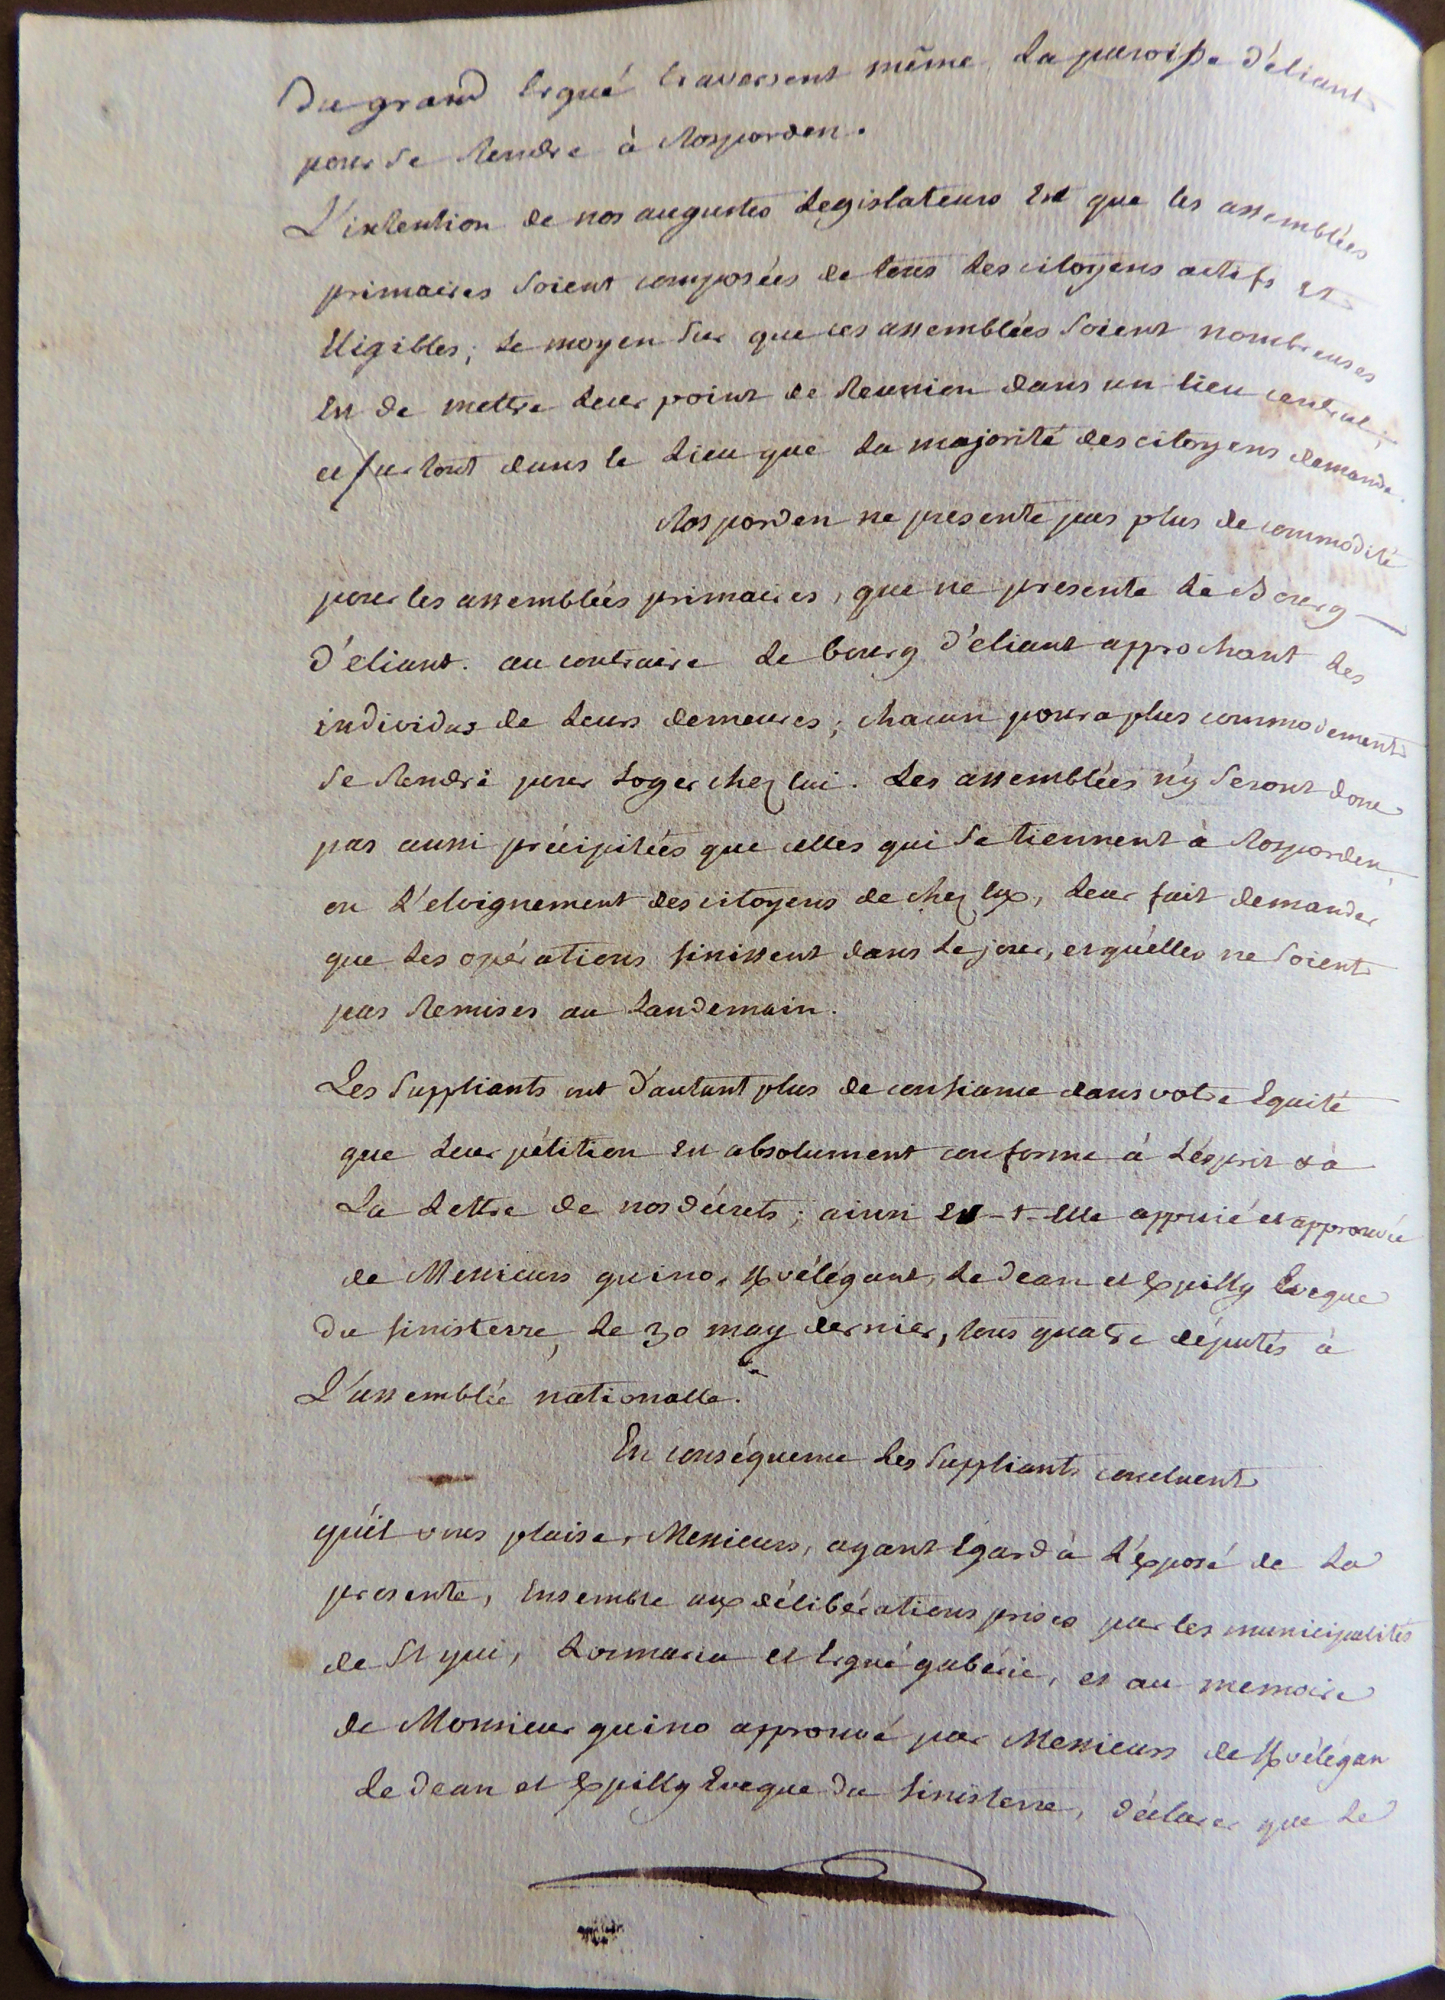 du grand Ergué traversent même la paroisse d'éliant
pour se Rendre à Rosporden.
L'intention de nos augustes Legislateurs Est que les assemblées
primaires soient composées de tous les citoyens actifs et
Eligibles; le moyen sur que ces assemblées soient nombreuses
Est de mettre leur point de Reunion dans un lieu central,
et surtout dans le lieu que la majorité des citoyens demande.
Rosporden ne presente pas plus de commodité
pour les assemblées primaires, que ne presente le Bourg
d'éliant. au contraire le bourg d'éliant approchant les
individus de leurs demeures; chacun poura plus commodement
se Rendre pour Loger chez lui. Les assemblées n'y seront donc
pas aussi précipitées que celles qui se tiennent à Rosporden,
ou L'eloignement des citoyens de chez Eux, leur fait demander
que les opérations finissent dans le jour, et qu'elles ne soient
pas Remises au Landemain.
Les Suppliants ont d'autant plus de confiance dans votre Equité
que leur pétition Est absolument conforme à L'ésprit & à
La Lettre de nos décrets; ainsi Est-t-Elle appuié et approuvée
de Messieurs guino, Kvélégant, Le dean et Expilly Eveque
du finisterre, le 30 may dernier, tous quatre députés à
L'assemblée nationalle.
En conséquence Les Suppliants concluent
qu'il vous plaise, Messieurs, ayant Egard à L'éxposé de La
presente, Ensemble aux délibérations prises par les municipalités
de St yvi, Locmaria et Ergué gabéric, et au memoire
de Monsieur guino approuvé par Messieurs de Kvélégan
Le dean et Expilly Eveque du finisterre, déclarer que Le